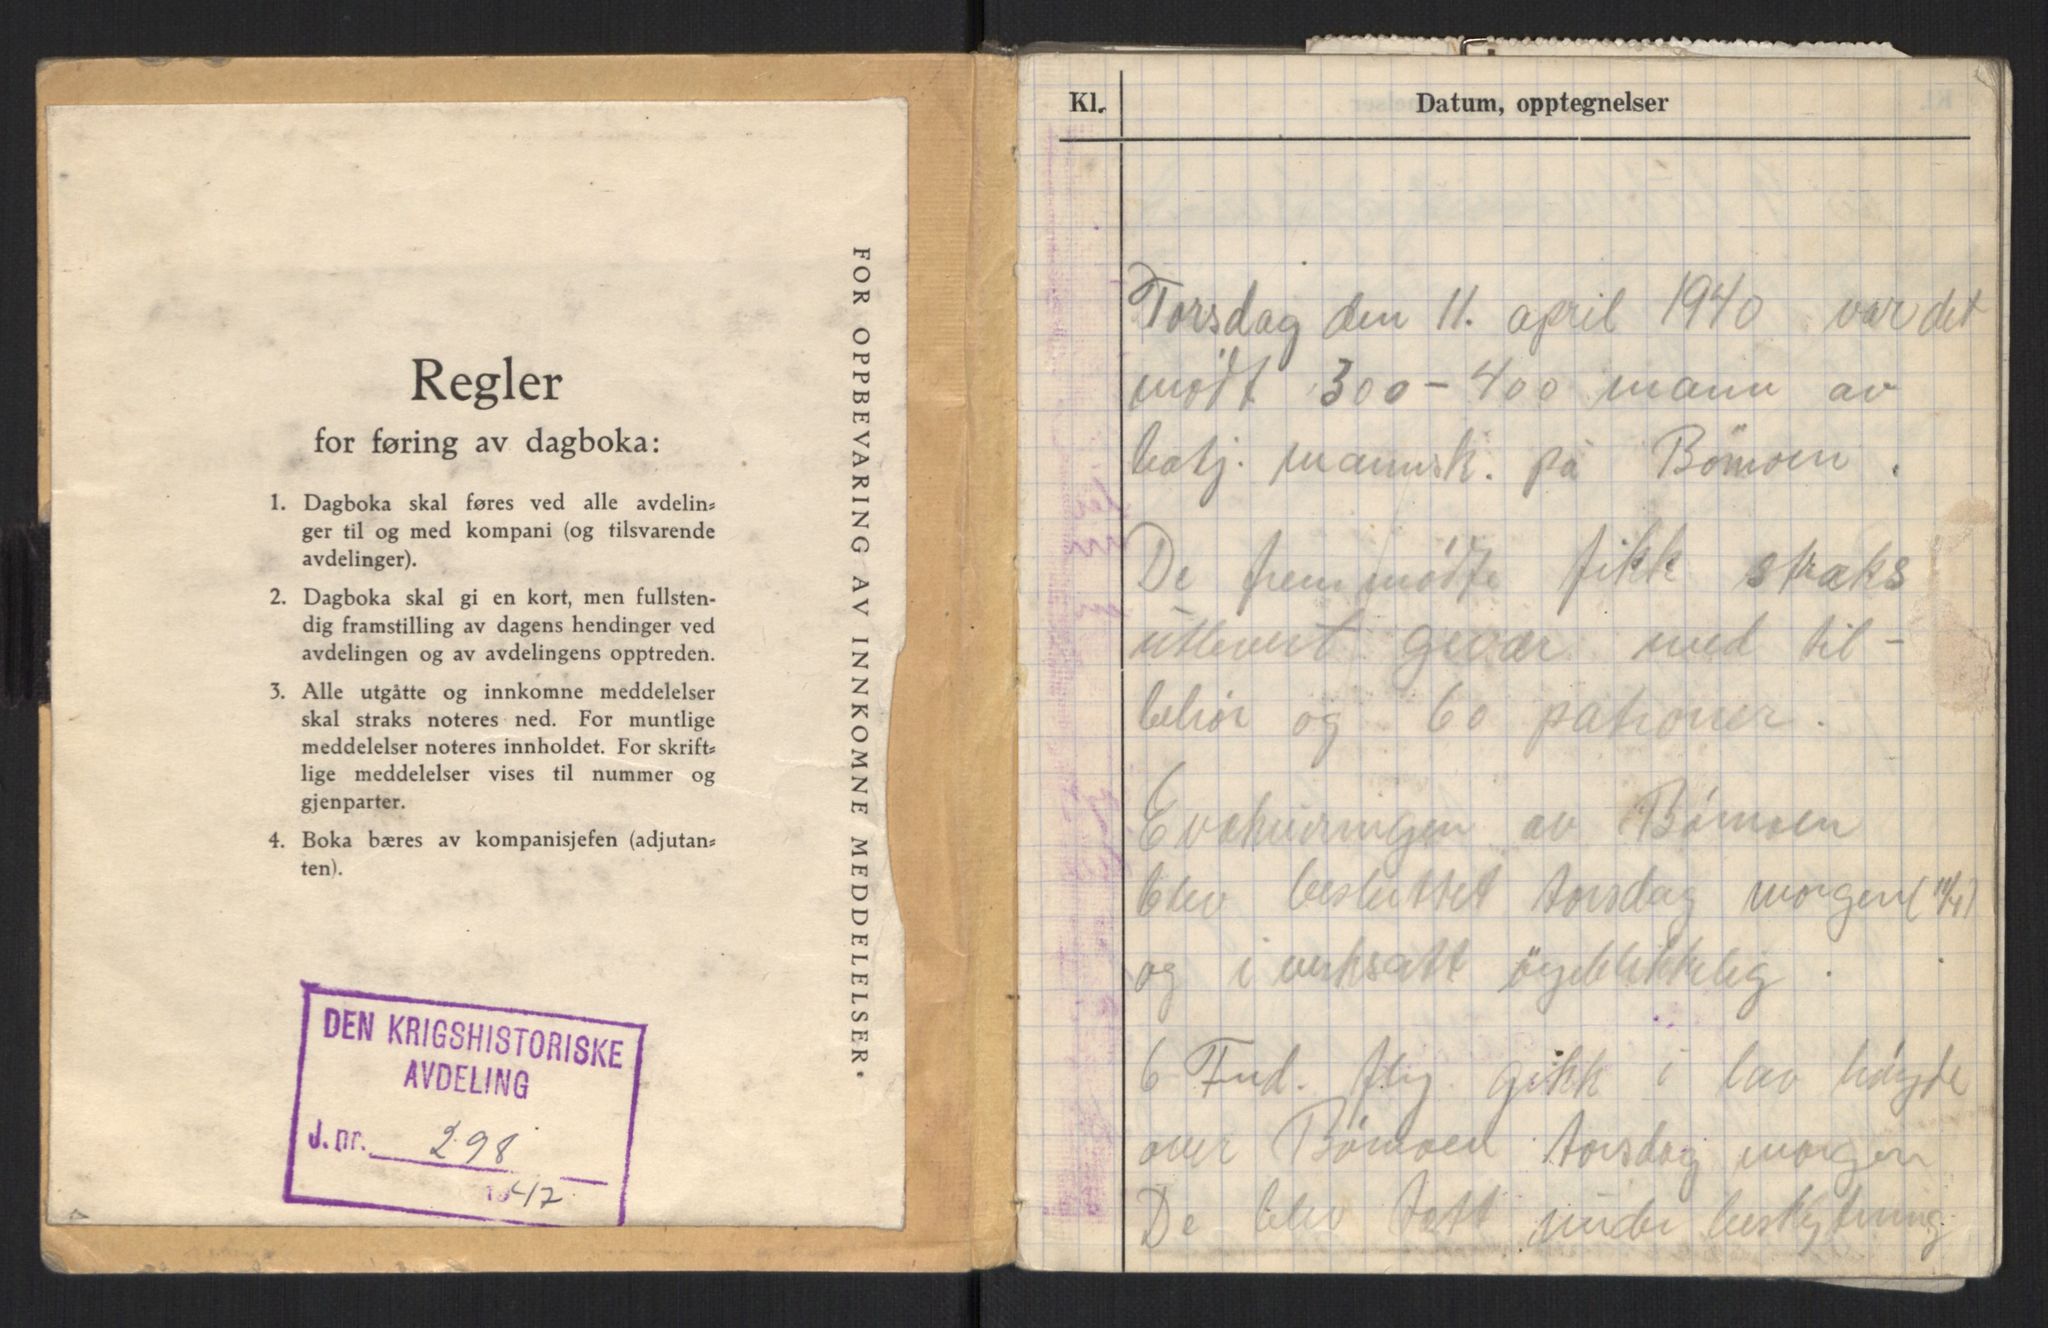 Regler
for føring av dagboka:
1. Dagboka skal føres ved alle avdelin-
ger til og med kompani (og tilsvarende
avdelinger).
2. Dagboka skal gi en kort, men fullsten-
dig framstilling av dagens hendinger ved
avdelingen og av avdelingens opptreden.
3. Alle utgåtte og innkomne meddelelser
skal straks noteres ned. For muntlige
meddelelser noteres innholdet. For skrift-
lige meddelelser vises til nummer og
gjenparter.
4. Boka bæres av kompanisjefen (adjutan-
ten).
FOR OPPBEVARING AV INNKOMNE MEDDELELSER.
DEN KRIGSHISTORISKE
AVDELING
J. nr. 298
1942
Kl. Datum, opptegnelser
Torsdag den 11. april 1940 var det
mødt 300-400 mann av
batj. mannsk. på Bømoen.
De fremmødte fikk straks
utlevert gevær med til-
behør og 60 patroner.
Evakueringen av Bømoen
blev besluttet torsdag morgen (11/4)
og iverksatt øyeblikkelig.
6 Fiend. fly gikk i lav høyde
over Bømoen torsdag morgen
De blev tatt under beskytning.